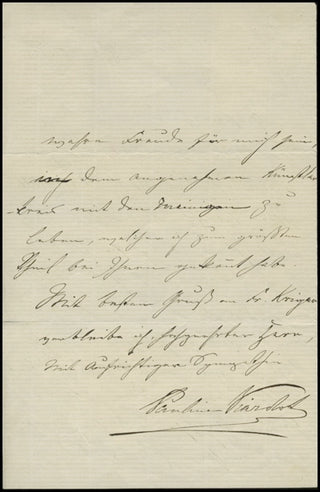 wahre Freude für mich sein,
auf dem angenehmen Künstler
kreis mit den Meinigen zu
leben, welchen ich zum größten
Theil bei Ihnen gekannt habe.
Mit besten Gruß an Fr. Krüger
verbleibe ich hochgeehrter Herr,
Mit Aufrichtiger Sympathie
Pauline Viardot